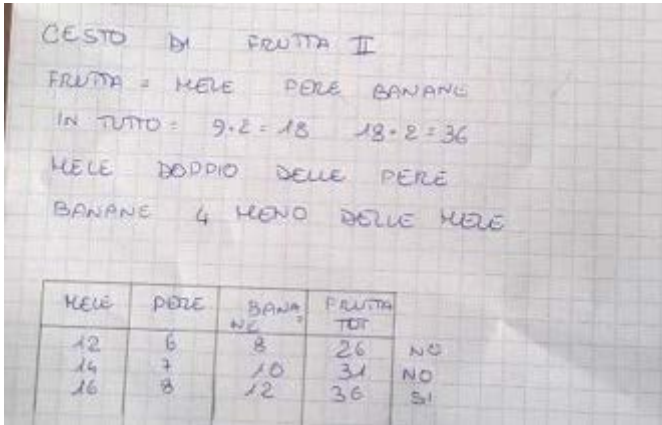 CESTO DI FRUTTA II
FRUTTA = MELE PERE BANANE
IN TUTTO = 9·2=18 18·2=36
MELE DOPPIO DELLE PERE
BANANE 4 MENO DELLE MELE
MELE PERE BANANE FRUTTA TOT
12 6 8 26 NO
14 7 10 31 NO
16 8 12 36 SI